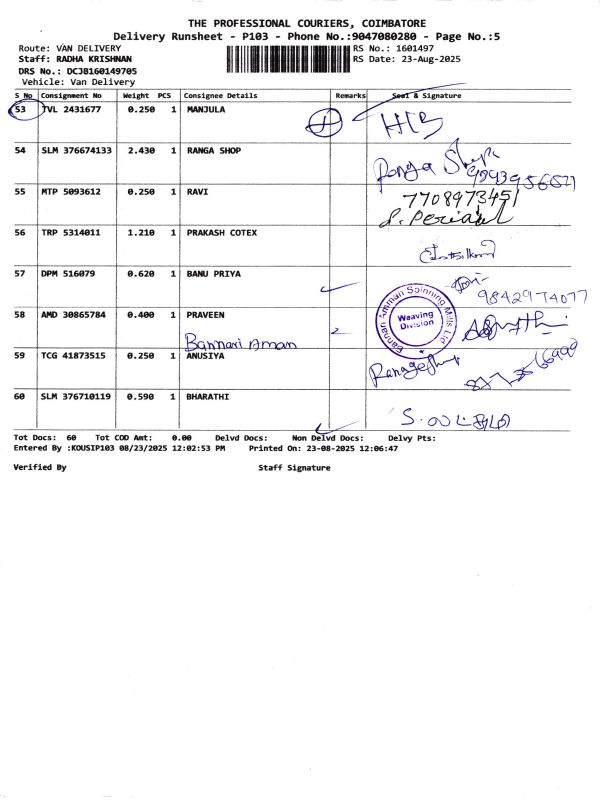 THE PROFESSIONAL COURIERS, COIMBATORE
Delivery Runsheet - P103 - Phone No.:9047080280 - Page No.:5
Route: VAN DELIVERY
RS No.: 1601497
Staff: RADHA KRISHNAN
RS Date: 23-Aug-2025
DRS No.: DCJB160149705
Vehicle: Van Delivery
S No Consignment No Weight PCS Consignee Details Remarks Seal & Signature
53 TVL 2431677 0.250 1 MANJULA
54 SLM 376674133 2.430 1 RANGA SHOP
Ranga
55 MTP 5093612 0.250 1 RAVI
7708973451
56 TRP 5314011 1.210 1 PRAKASH COTEX
57 DPM 516079 0.620 1 BANU PRIYA
9842974077
58 AMD 30865784 0.400 1 PRAVEEN
Bannari Aman
Bannari Amman Spinning Mills Ltd
Weaving
Division
59 TCG 41873515 0.250 1 ANUSIYA
60 SLM 376710119 0.590 1 BHARATHI
Tot Docs: 60 Tot COD Amt: 0.00 Delvd Docs: Non Delvd Docs: Delvy Pts:
Entered By :KOUSIP103 08/23/2025 12:02:53 PM Printed On: 23-08-2025 12:06:47
Verified By Staff Signature